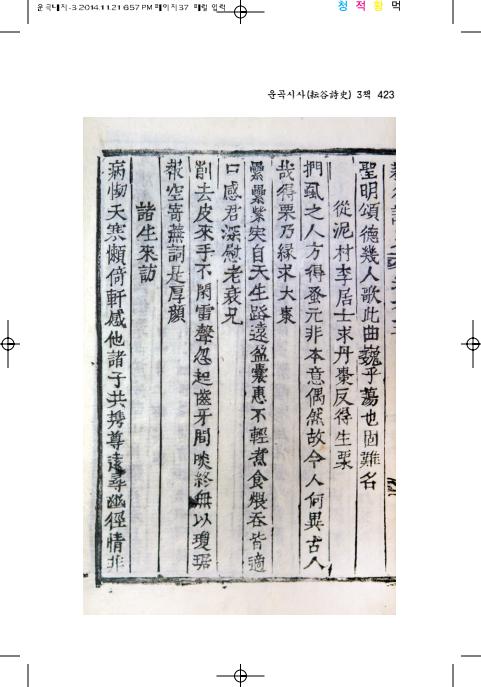 운곡내지-3 2014.11.21 6:57 PM 페이지37 매일 입력
청 적 황 먹
운곡시사(耘谷詩史) 3책 423
聖明頌德幾人歌此曲巍乎蕩也固難名
從泥村李居士求丹棗反得生栗
捫虱之人方得蚤元非本意偶然故今人何異古人
哉得栗乃緣求大棗
纍纍紫宊自天生路遠盆囊惠不輕煮食煨吞皆適
口感君深慰老衰兄
削去皮來手不閑雷聲忽起齒牙間啖終無以瓊琚
報空寄蕪詞是厚顔
諸生來訪
病惱天寒懶倚軒感他諸子共携尊遠尋幽徑情非